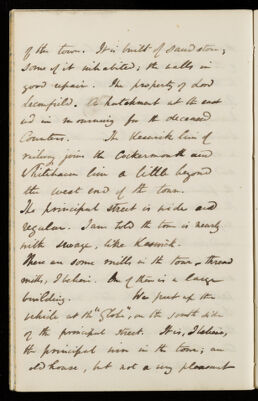 of the town. It is built of sandstone;
some of it inhabited; the walls in
good repair. The property of Lord
Leconfield. A hatchment at the east
end in mourning for the deceased
Countess. The Keswick line of
railway joins the Cockermouth and
Whitehaven line a little beyond
the west end of the town.
The principal street is wide and
regular. I am told the town is nearly
with sewage, like Keswick.
There are some mills in the town, thread
mills, I believe. One of them is a large
building. We put up the
vehicle at the "Globe", on the south side
of the principal street. It is, I believe,
the principal inn in the town; an
old house, but not a very pleasant